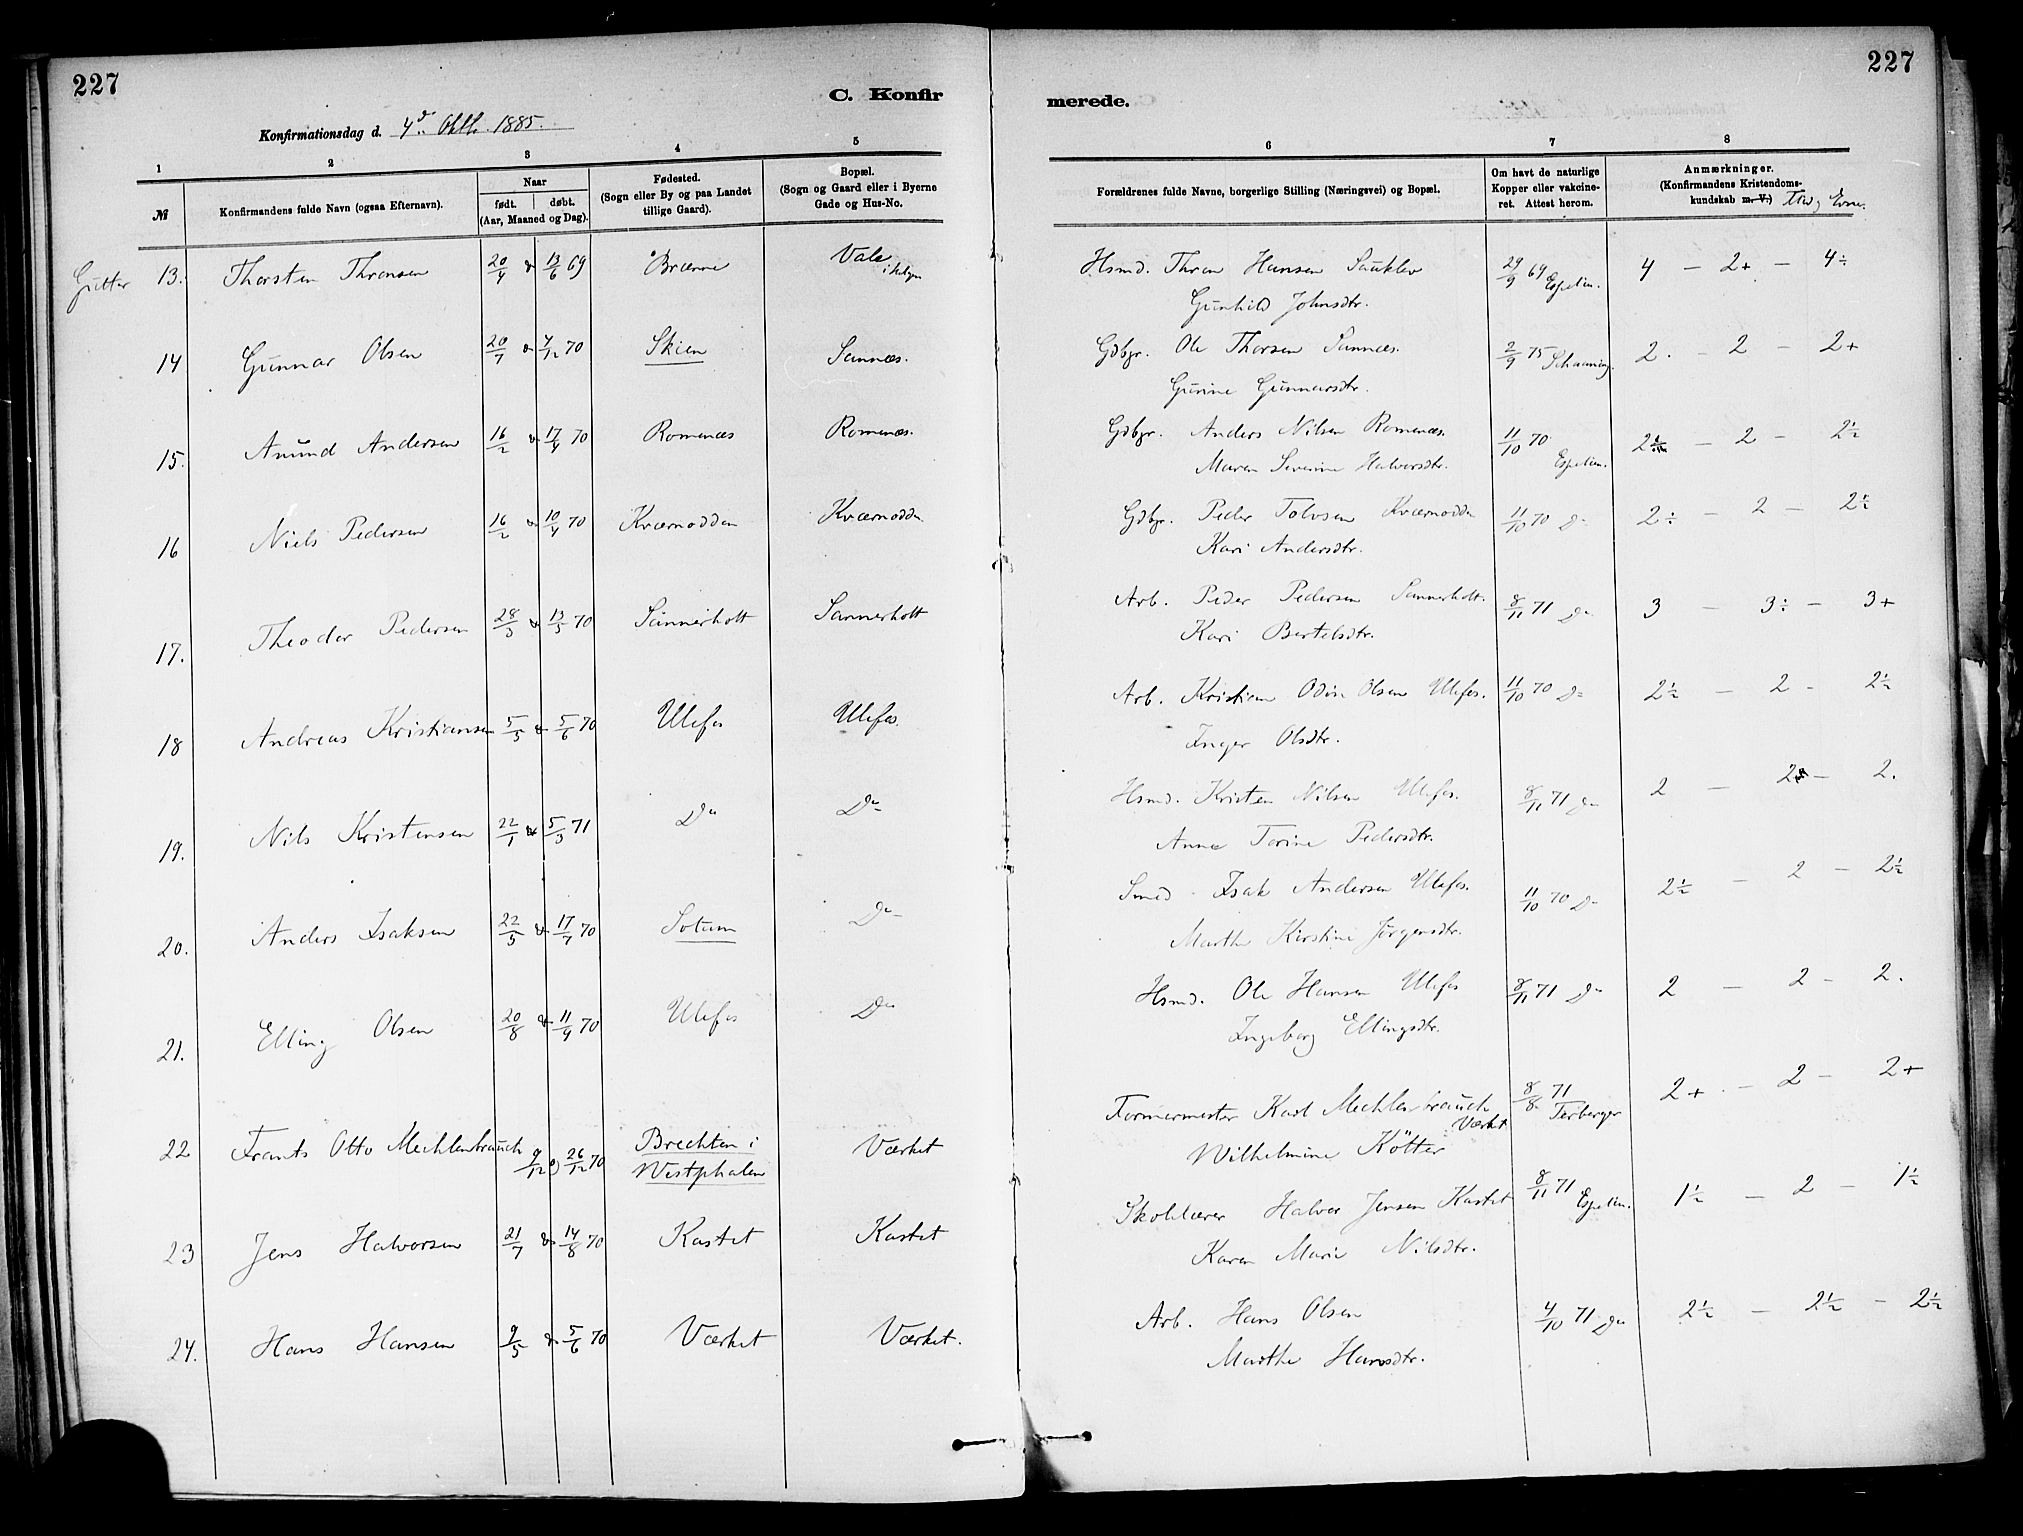 227
227
C. Konfir
merede.
Konfirmationsdag d. 4de Oktb. 1885.
1 2 3 4 5 6 7 8
№
Konfirmandens fulde Navn (ogsaa Efternavn).
Naar
født. døbt.
(Aar, Maaned og Dag).
Fødested.
(Sogn eller By og paa Landet
tillige Gaard).
Bopæl.
(Sogn og Gaard eller i Byerne
Gade og Hus-No.
Forældrenes fulde Navne, borgerlige Stilling (Næringsvei) og Bopæl.
Om havt de naturlige
Kopper eller vakcine-
ret. Attest herom.
Anmærkninger.
(Konfirmandens Kristendoms-
kundskab m. V.)
Gutter 13. Thorsten Thronsen 20/4 & 13/6 69 Brænne Vale Hsmd. Thron Hansen Sauklev 29/9 69 Espelin. 4 - 2+ - 4÷
Gunhild Johnsdtr.
14 Gunnar Olsen 20/7 & 4/12 70 Skien Sannæs. Gdbgr. Ole Thorsen Sannæs. 2/9 75 Schaaning. 2. - 2 - 2+
Gurine Gunnarsdtr.
15. Amund Andersen 16/2 & 17/4 70 Romenæs Romenæs. Gdbgr. Anders Nilsen Romenæs. 11/10 70 Espelin. 2½ - 2 - 2½
Maren Severine Halvorsdtr.
16 Niels Pedersen 16/2 & 10/4 70 Kværnodden Kværnodden Gdbgr. Peder Tolvsen Kværnodden 11/10 70 Do 2÷ - 2 - 2½
Kari Andersdtr.
17. Theodor Pedersen 28/3 & 13/5 70 Sannerholt Sannerholt Arb. Peder Pedersen Sannerholt. 8/11 71 Do 3 - 3÷ - 3+
Kari Bertelsdtr.
18 Andreas Kristiansen 5/5 & 5/6 70 Ulefos Ulefos. Arb. Kristian Odin Olsen Ulefos. 11/10 70 Do 2½ - 2 - 2½
Inger Olsdtr.
19. Nils Kristensen 22/1 & 5/3 71 Do Do Hsmd. Kristen Nilsen Ulefos. 8/11 71 Do 2 - 2 - 2.
Anne Torine Pedersdtr.
20. Anders Isaksen 22/5 & 17/7 70 Sotum Do Smed Isak Andersen Ulefos. 11/10 70 Do 2½ - 2 - 2½
Marthe Kirstine Jørgensdtr.
21. Elling Olsen 20/8 & 11/9 70 Ulefos Do Hsmd. Ole Hansen Ulefos 8/11 71 Do 2 - 2 - 2.
Ingeborg Ellingsdtr.
22 Frants Otto Mechlenbrauck 9/12 & 26/12 70 Brechten i Værket Formermester Karl Mechlenbrauck 8/8 71 Terberger 2+ - 2 - 2+
Westphalen Værket
Wilhelmine Kötter
23 Jens Halvorsen 21/7 & 14/8 70 Kastet Kastet Skolelærer Halvor Jensen Kastet 8/11 71 Espelin. 1½ - 2 - 1½
Karen Marie Nilsdtr.
24. Hans Hansen 9/5 & 5/6 70 Værket Værket. Arb. Hans Olsen 4/10 71 Do 2½ - 2½ - 2½
Marthe Hansdtr.